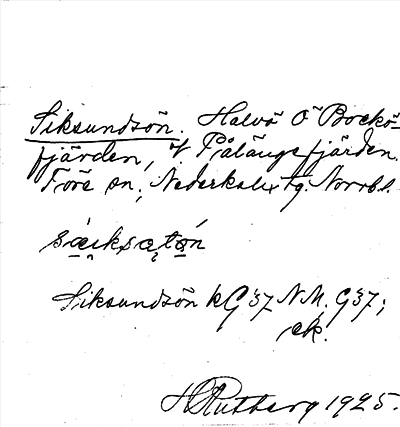 Siksundsön. Halvö Ö Bockö-
fjärden, V. Pålängefjärden.
Töre sn, Nederkalix tg. Norrb. l.
Siksundsön kG 37 N.M. G 37;
ek.
H Rutberg 1925.